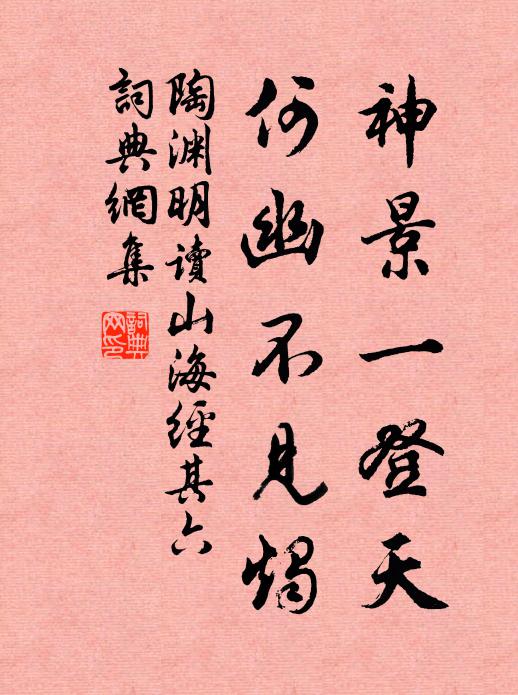 神景一登天
何幽不見燭
陶渊明讀山海經其六
詞典網集
詞典
网印